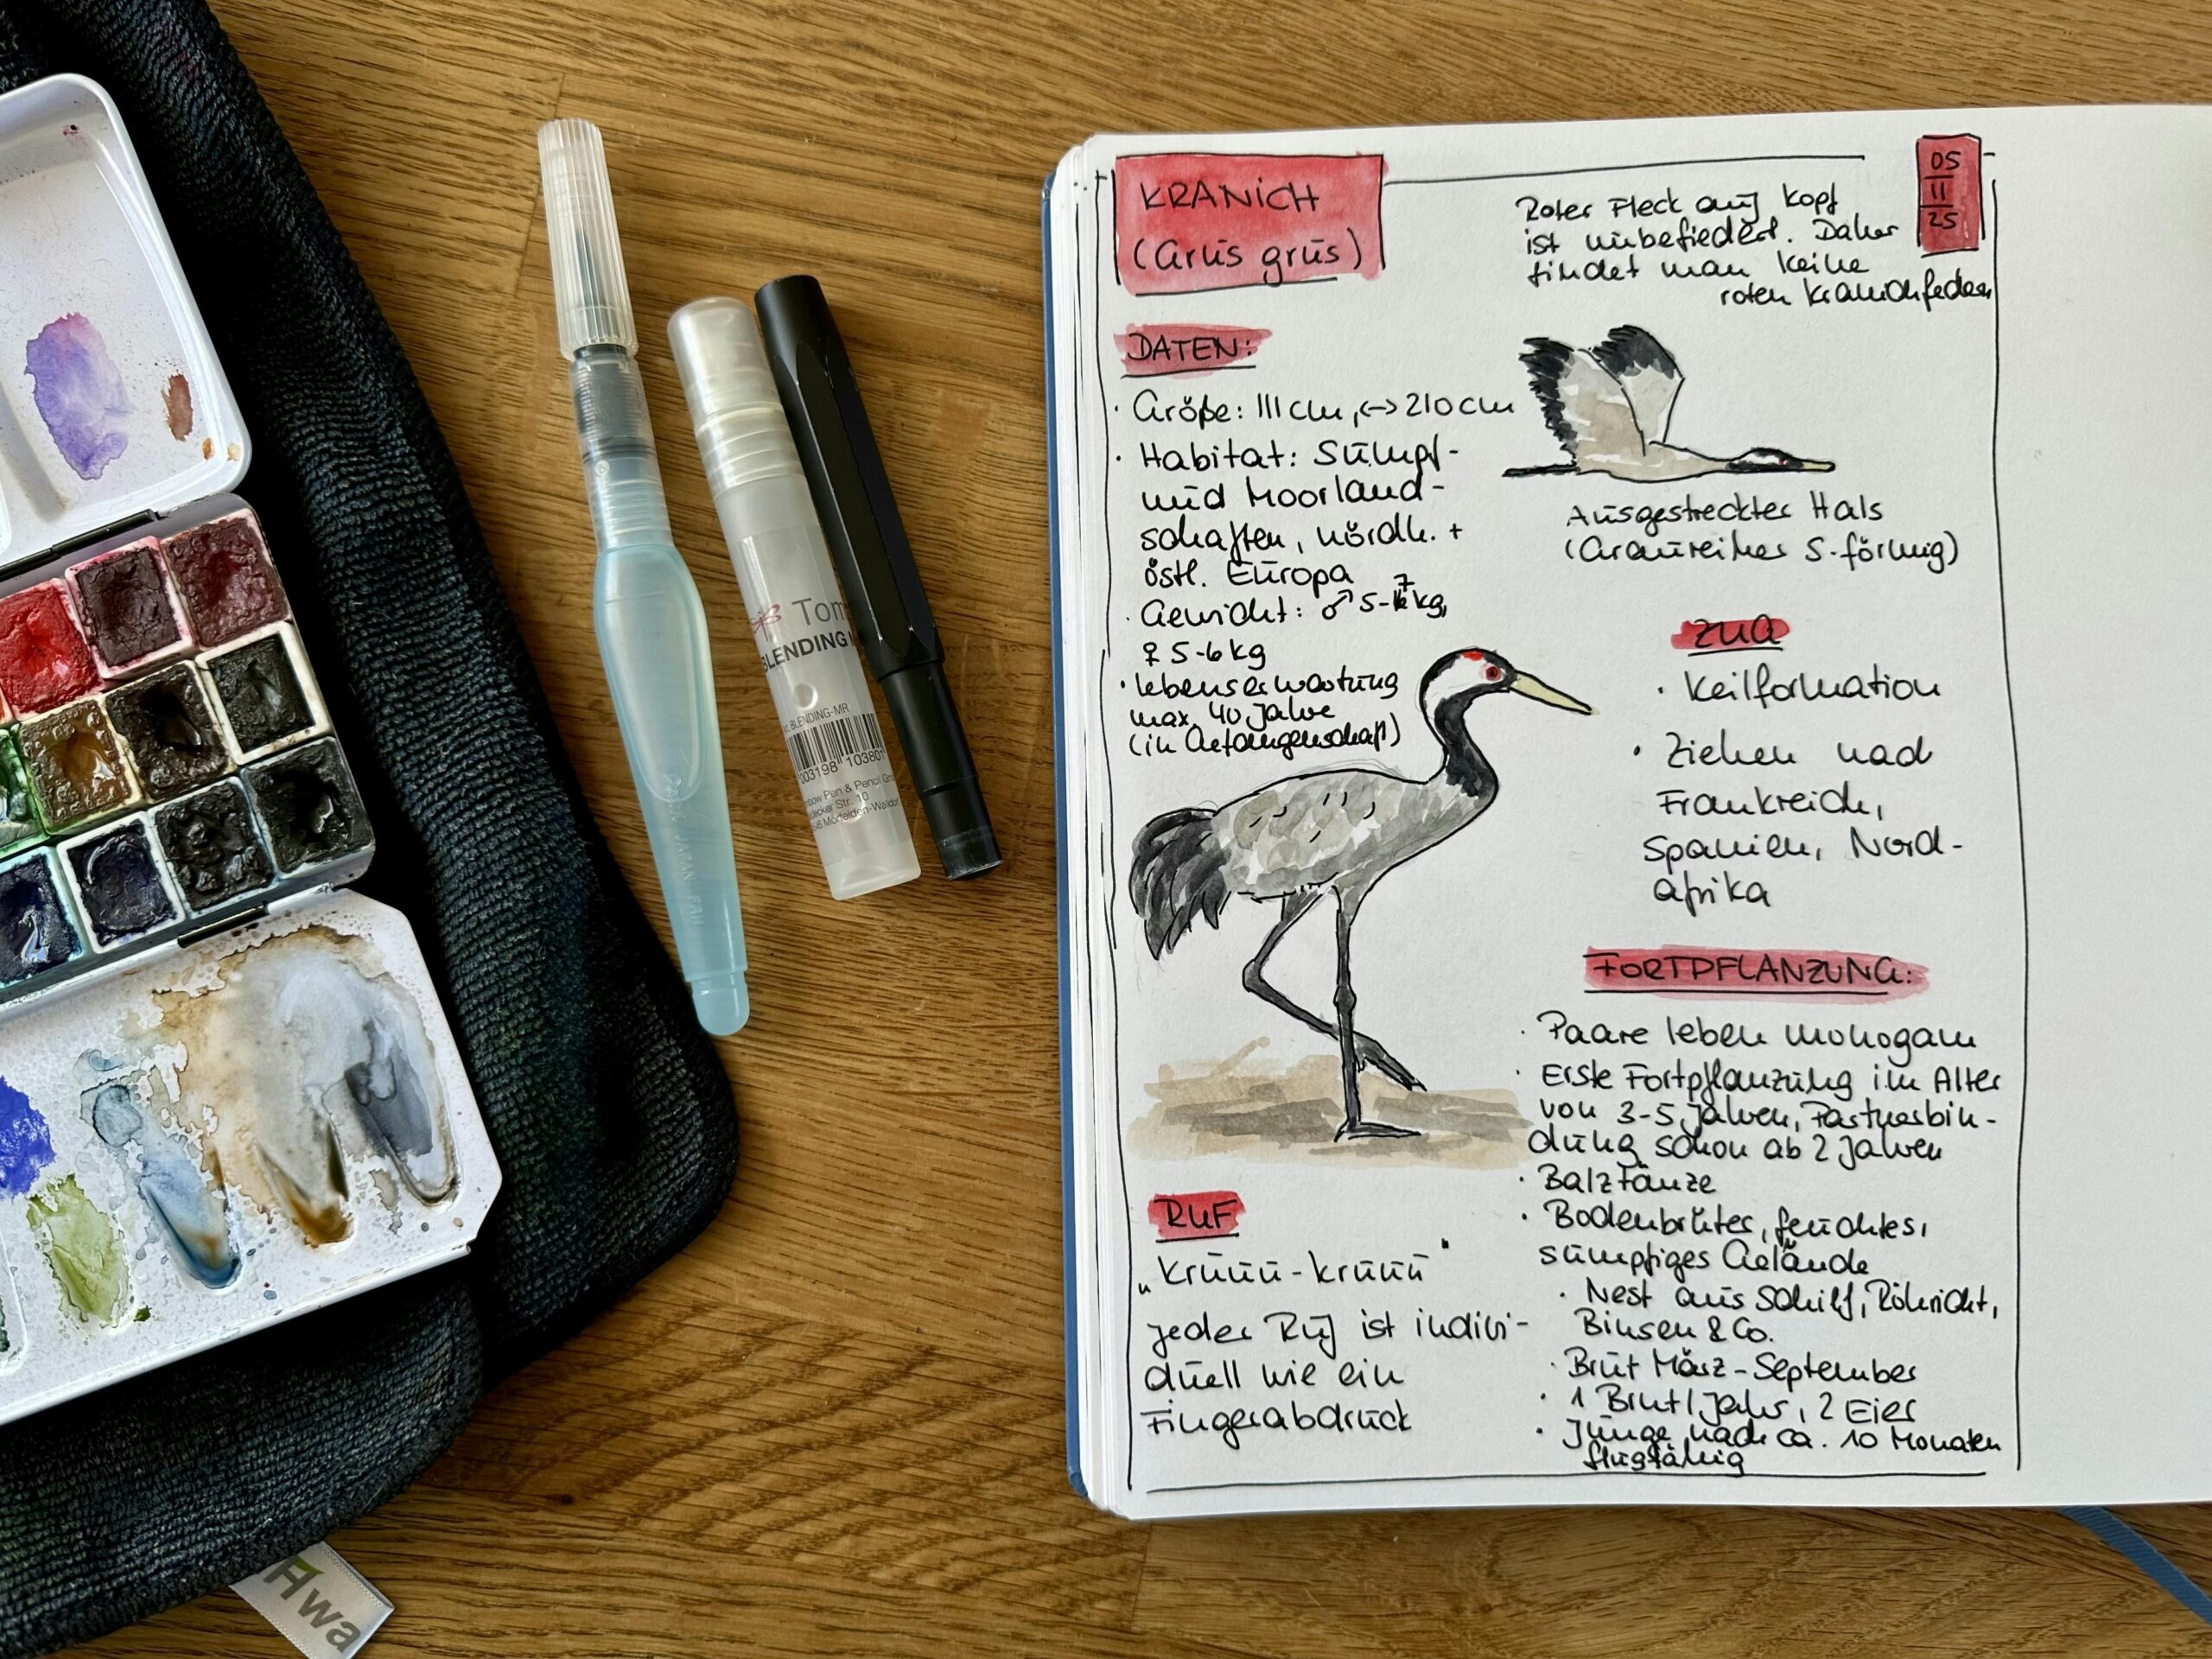 KRANICH
(Grus grus)
05
11
25
Roter Fleck auf Kopf
ist unbefiedert. Daher
findet man keine
roten Kranichfedern
DATEN:
· Größe: 111 cm, ↔ 210 cm
· Habitat: Sumpf-
und Moorland-
schaften, nördl. +
östl. Europa
· Gewicht: ♂ 5-7 kg,
♀ 5-6 kg
· Lebenserwartung
max. 40 Jahre
(in Gefangenschaft)
Ausgestreckter Hals
(Graureiher S-förmig)
ZUG
· Keilformation
· Ziehen nach
Frankreich,
Spanien, Nord-
afrika
FORTPFLANZUNG:
· Paare leben monogam
· Erste Fortpflanzung im Alter
von 3-5 Jahren, Partnerbin-
dung schon ab 2 Jahren
· Balztänze
· Bodenbrüter, feuchtes,
sumpfiges Gelände
· Nest aus Schilf, Röhricht,
Binsen & Co.
· Brut März - September
· 1 Brut/Jahr, 2 Eier
· Junge nach ca. 10 Monaten
flugfähig
RUF
„Kruuu-kruuu"
jeder Ruf ist indivi-
duell wie ein
Fingerabdruck
Tom
BLENDING
BLENDING-MR
003198 103801
bow Pen & Pencil Gm
decker Str. 10
46 Mörfelden-Walldor
wa